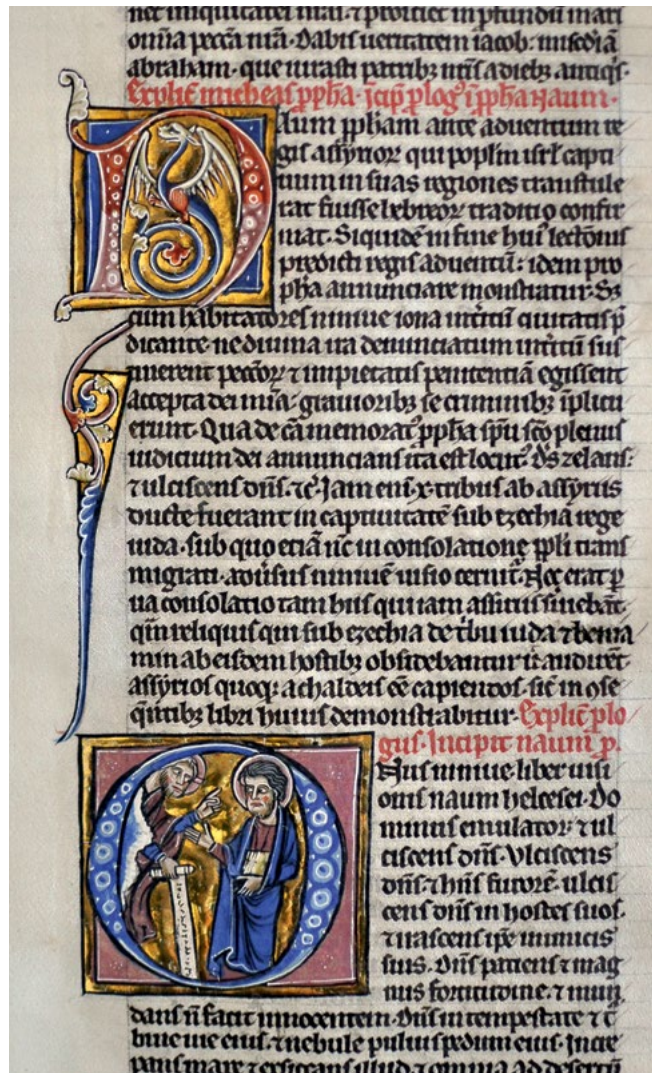 net iniquitates nr̄as ⁊ proiciet in ꝓfundū maris
om̄ia pecc̄a nr̄a. Dabis ueritatem iacob. mis̄cdiā
abraham. que iurasti patribꝫ nr̄is a diebꝫ antiq̄s.
Explic̄ micheas ꝓpha. īcip̄ ꝓlogꝰ ī ꝓpha naum.
Naum ꝓpham ante aduentum re
gis assyrioꝝ qui poplm̄ isrl̄ capti
uum in suas regiones transtule
rat fuisse hebreoꝝ traditio confir
mat. Siquidē in fine huiꝰ lectionis
predicti regis aduentū: idem pro
pha annunciare monstratur. Sꝫ
cum habitatores niniue iona int̄itū ciuitatis p̄
dicante. ne diuina ira denunciatum int̄itū sus
tinerent pecc̄oꝝ ⁊ impietatis penitentiā egissent
accepta dei mīa. grauioribꝫ se criminibꝫ īplicu
erunt. Qua de cā memoratꝰ ꝓpha sp̄u sc̄o plenus
iudicium dei annuncians ita est locutꝰ. d̄s zelans:
⁊ ulciscens dn̄s. ⁊c̄. Jam eni x. tribus ab assyriis
ducte fuerant in captiuitatē sub ezechia rege
iuda. sub quo etiā nc̄ in consolatione ppl̄i trans
migrati. adūsus niniuē uisio cernit̄. Nec erat ꝑ
ua consolatio tam hiis qui iam assiriis s̄uiebāt.
qm̄ reliquis qui sub ezechia de t̄bu iuda ⁊ benia
min ab eisdem hostibꝫ obsidebantur ut audirēt.
assyrios quoqꝫ a chaldeis ēē capiendos. sic̄ in ↄse
q̄ntibꝫ libri huius demonstrabitur. Explic̄ ꝓlo
gus. Incipit naum ꝓ.
Onus niniue. liber uisi
onis naum helcesei. Do
minus emulator: ⁊ ul
ciscens dn̄s. Vlciscens
dn̄s. ⁊ hn̄s furorē. ulcis
cens dn̄s in hostes suos.
⁊ irascens ip̄e inimicis
suis. Dn̄s patiens ⁊ mag
nus fortitudine. ⁊ mun
dans n̄ faciet innocentem. Dn̄s in tempestate ⁊ t̄
bine uie eius. ⁊ nebule puluis pedum eius. Incre
pans mare ⁊ exsiccans illud. ⁊ omnia ad desertū